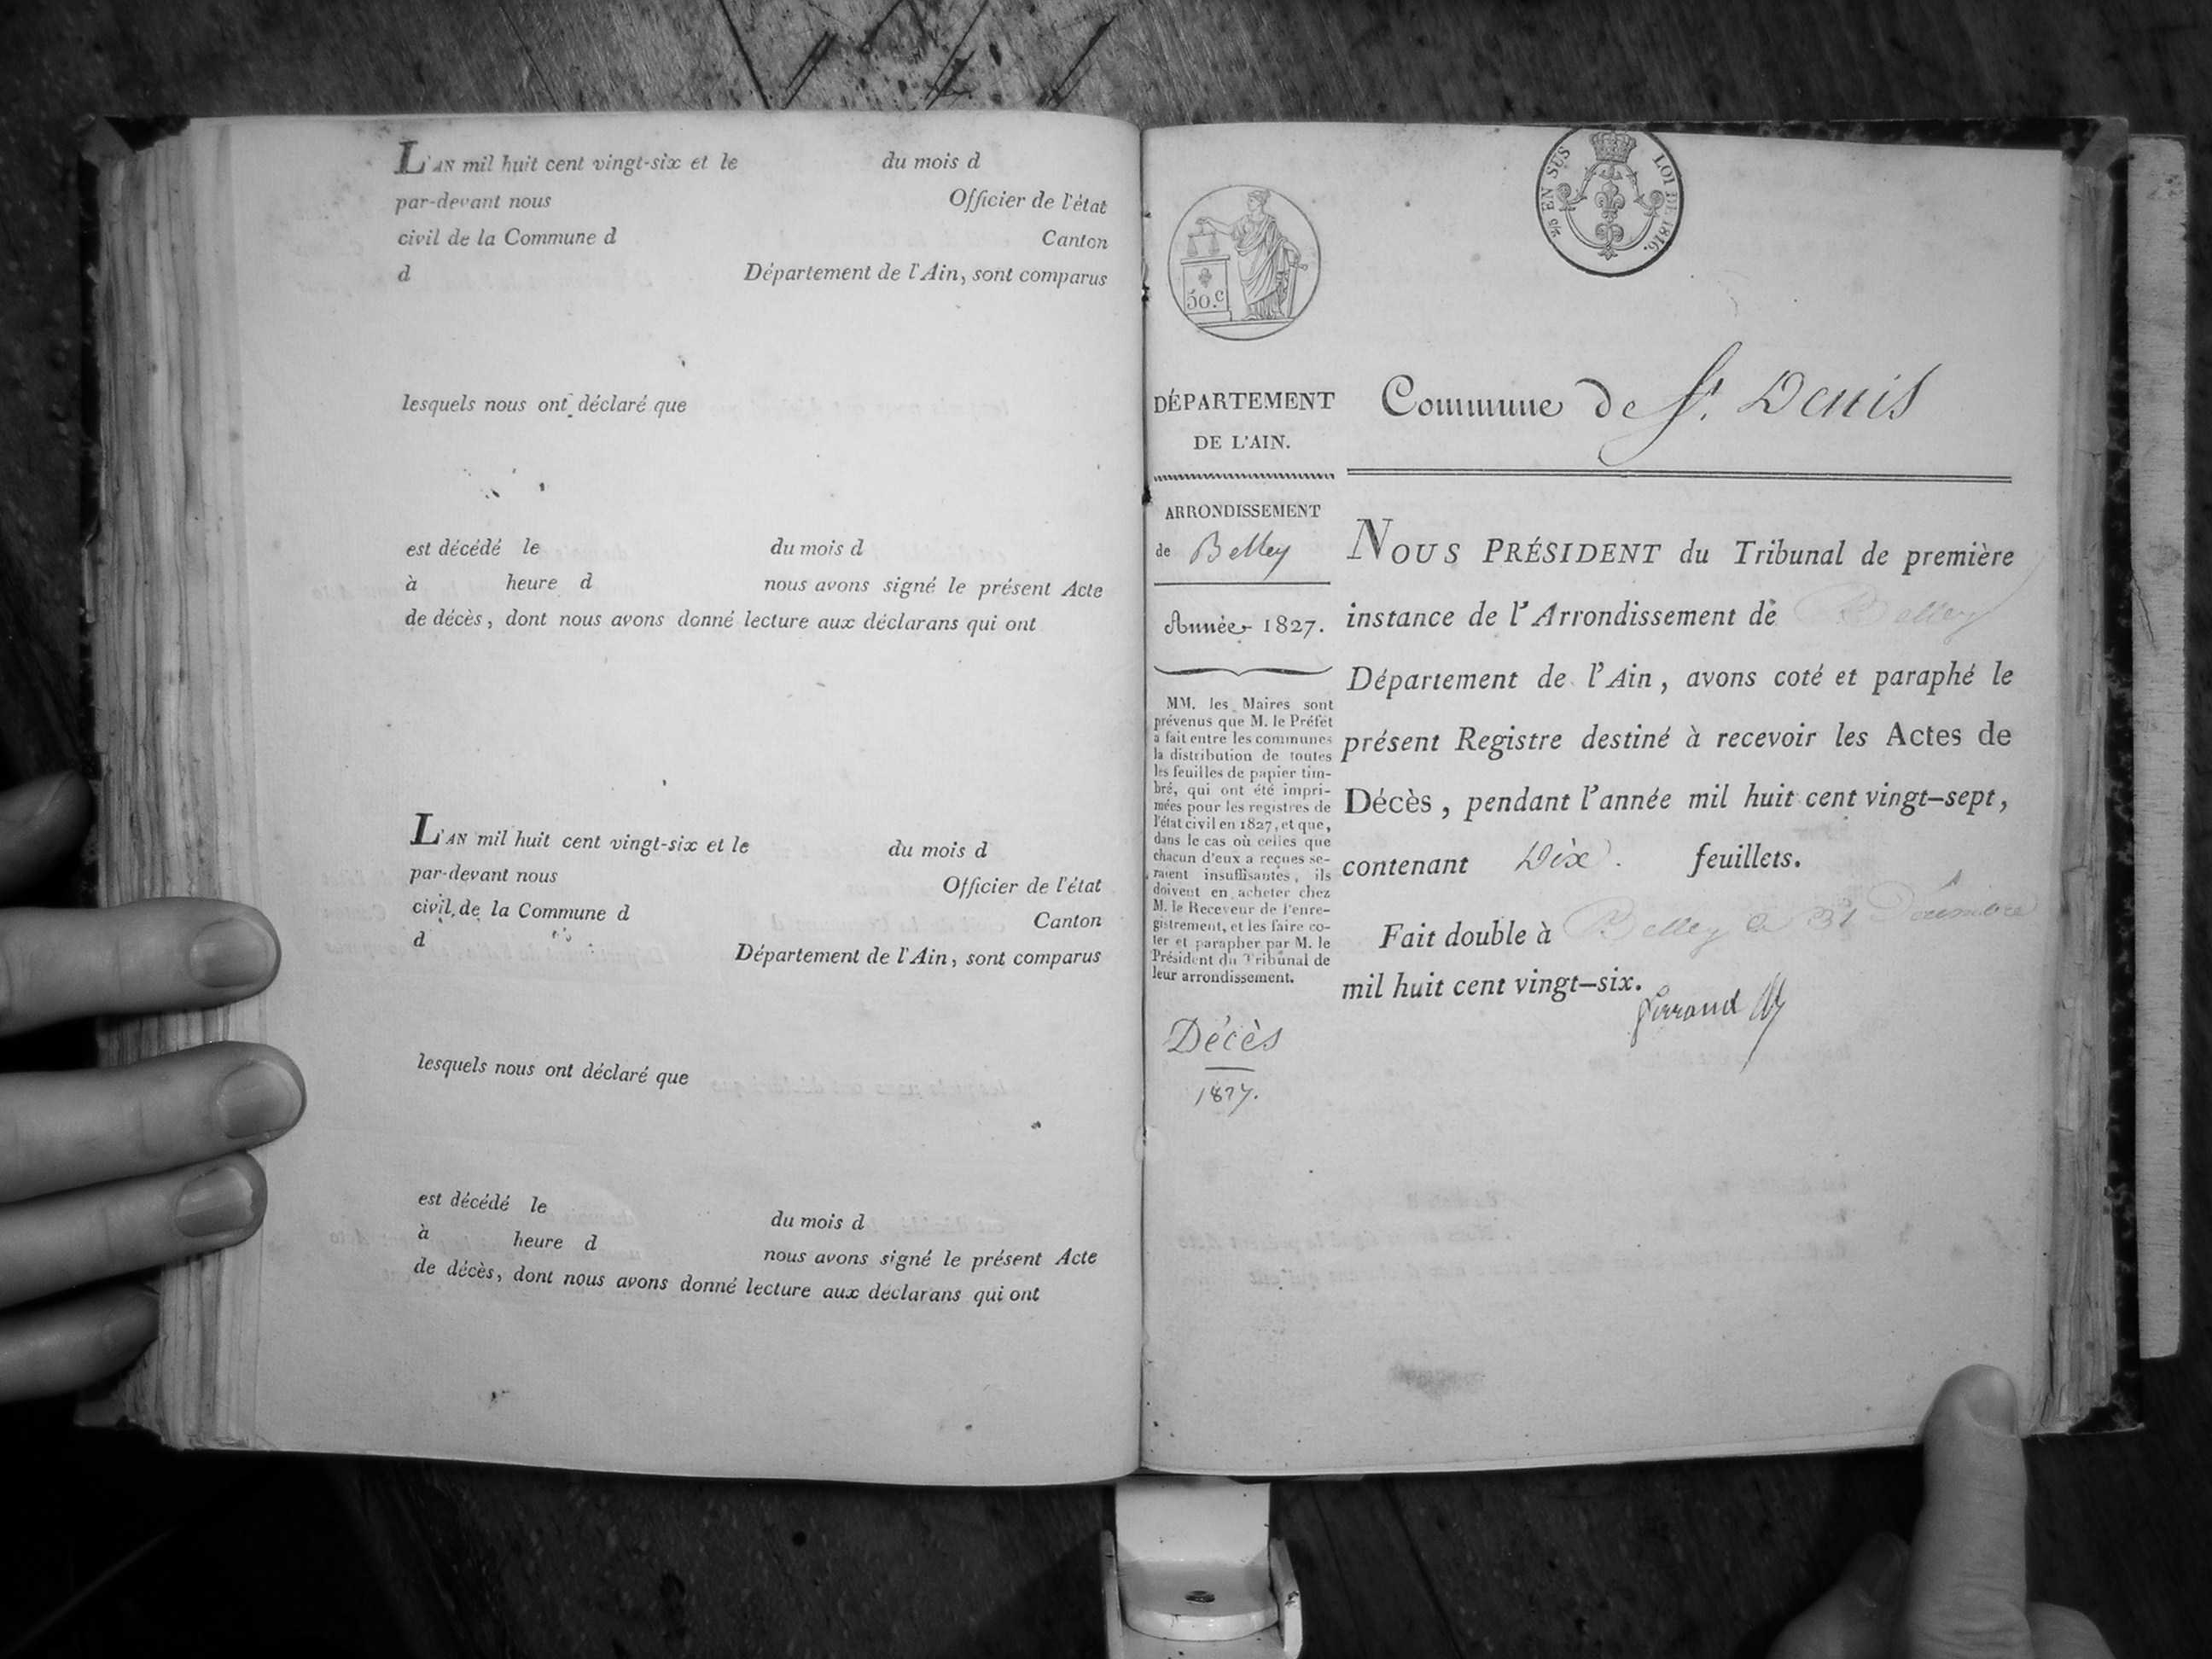 L'AN mil huit cent vingt-six et le du mois d
par-devant nous Officier de l'état
civil de la Commune d Canton
d Département de l'Ain, sont comparus
lesquels nous ont déclaré que
est décédé le du mois d
à heure d nous avons signé le présent Acte
de décès, dont nous avons donné lecture aux déclarans qui ont
L'AN mil huit cent vingt-six et le du mois d
par-devant nous Officier de l'état
civil de la Commune d Canton
d Département de l'Ain, sont comparus
lesquels nous ont déclaré que
est décédé le du mois d
à heure d nous avons signé le présent Acte
de décès, dont nous avons donné lecture aux déclarans qui ont
EN SUS LOI DE 1816.
50.c
DÉPARTEMENT
DE L'AIN.
ARRONDISSEMENT
de Belley
Année 1827.
MM. les Maires sont
prévenus que M. le Préfet
a fait entre les communes
la distribution de toutes
les feuilles de papier tim-
bré, qui ont été impri-
mées pour les registres de
l'état civil en 1827, et que,
dans le cas où celles que
chacun d'eux a reçues se-
raient insuffisantes, ils
doivent en acheter chez
M. le Receveur de l'enre-
gistrement, et les faire co-
ter et parapher par M. le
Président du Tribunal de
leur arrondissement.
Décès
1827.
Commune de St. Denis
NOUS PRÉSIDENT du Tribunal de première
instance de l'Arrondissement de Belley
Département de l'Ain, avons coté et paraphé le
présent Registre destiné à recevoir les Actes de
Décès, pendant l'année mil huit cent vingt-sept,
contenant Dix. feuillets.
Fait double à Belley le 31 Décembre
mil huit cent vingt-six.